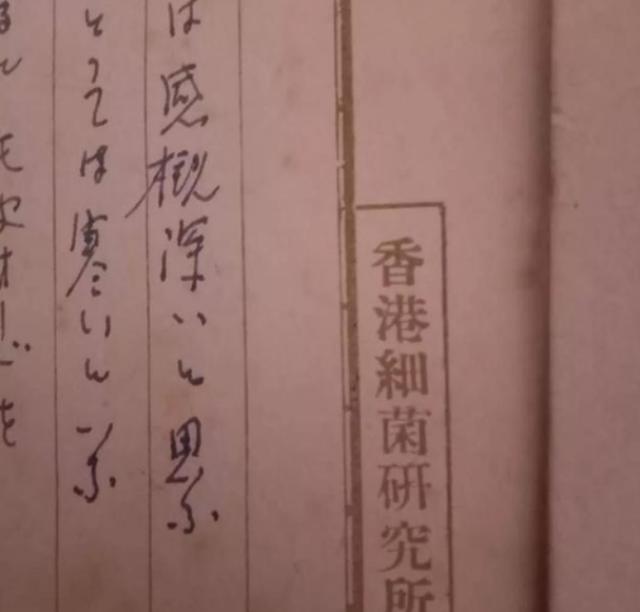 香港細菌研究所
は感概深いと思ふ
とつては寒いと云ふ